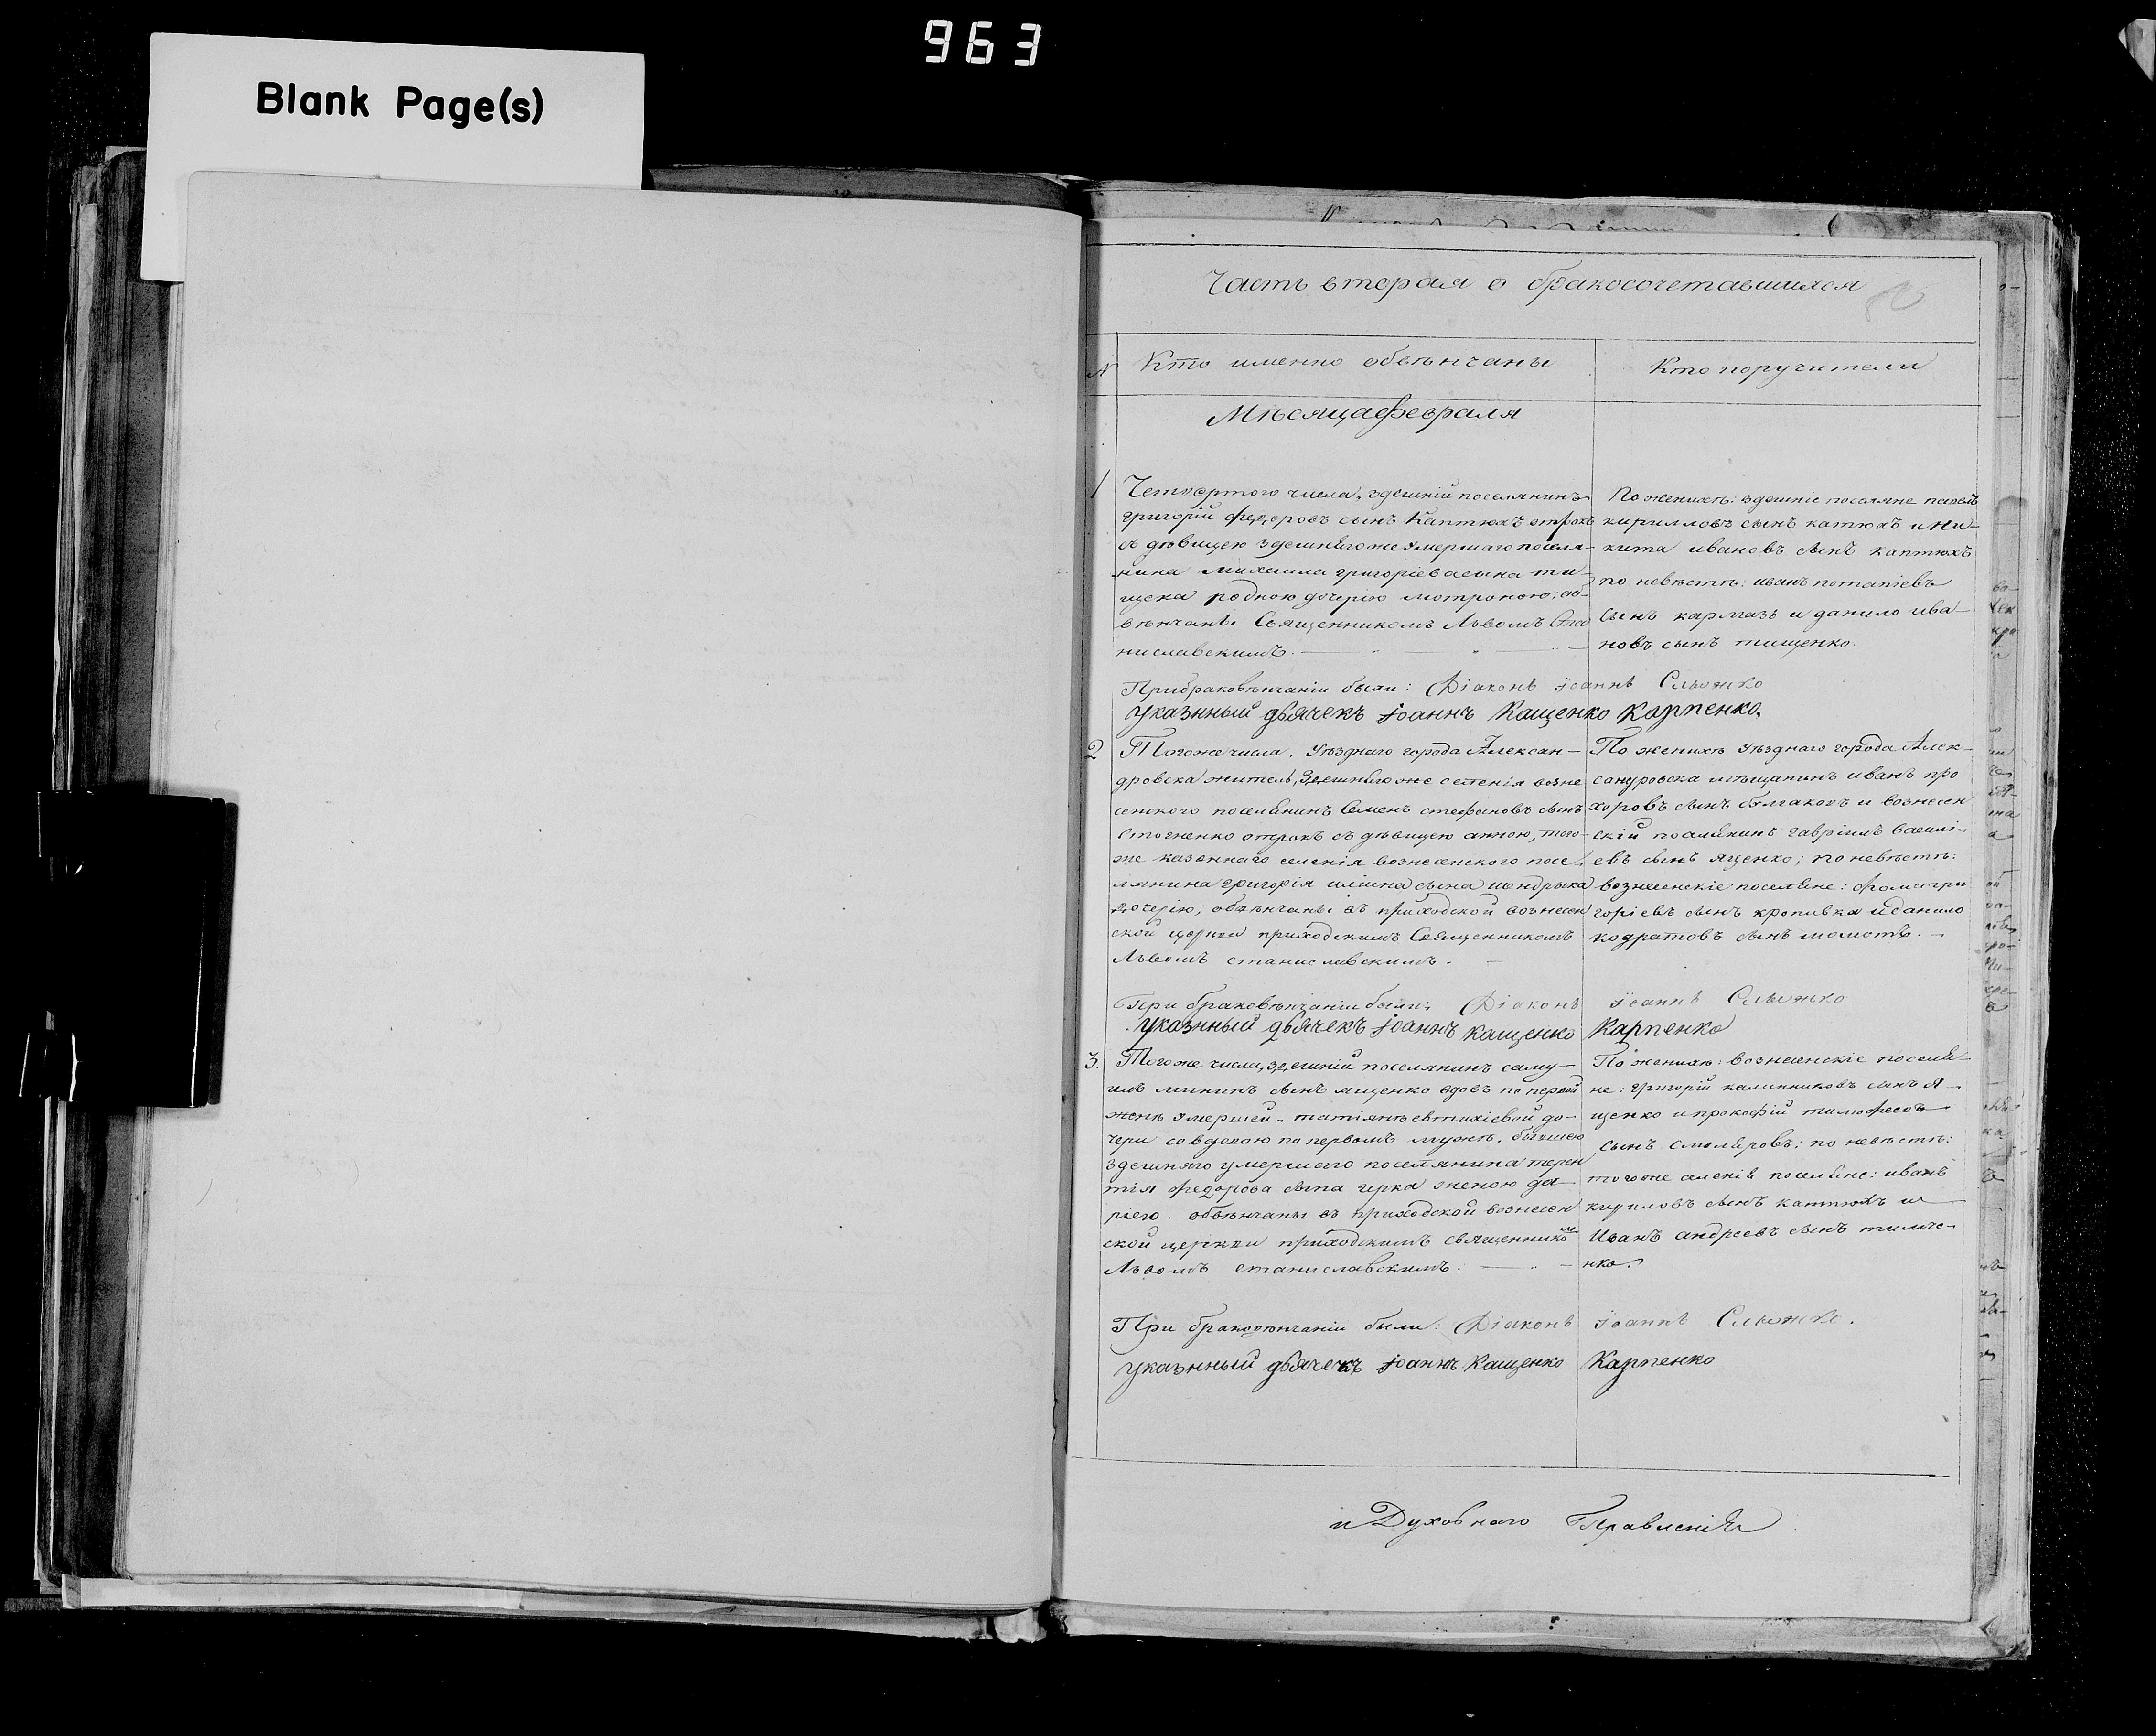 963
Blank Page(s)
Часть вторая о бракосочетавшихся
N Кто именно обвѣнчаны
Кто поручители
Мѣсяца февраля
1 Четвертого числа, здешній поселянинъ
григорій федоровъ сынъ Каптюхъ отрокъ
съ дѣвицею здешняго же умершаго поселя-
нина михаила григоріева сына ти-
щека родною дочерію мотроною; об-
вѣнчаны Священникомъ Львомъ Ста
ниславскимъ.
По женихѣ: здешніе поселяне павелъ
кирилловъ сынъ катюхъ и Ни-
кита ивановъ сынъ каптюхъ
по невѣстѣ: иванъ потапіевъ
сынъ кармазъ и данило ива-
новъ сынъ тищенко.
При браковѣнчаніи были: Діаконъ Іоаннъ
указнный дьячекъ Іоаннъ Кащенко Карпенко.
2 Того же числа, уѣзднаго города Алексан-
дровска житель, здешняго же селенія возне
сенского поселянинъ Семенъ стефановъ сынъ
отрокъ съ дѣвицею анною, того-
же казеннаго селенія вознесенского посе-
лянина григорія сына шендрыка
дочерію; обвѣнчаны въ приходской вознесен
ской церкви приходскимъ Священникомъ
Львомъ станиславскимъ.
По женихѣ уѣзднаго города Алек-
сандровска мѣщанинъ иванъ про
хоровъ сынъ и вознесен
скій поселянинъ гавріилъ василі-
евъ сынъ яценко; по невѣстѣ:
вознесенскіе поселяне: фома гри
горіевъ сынъ кропивка и данило
кодратовъ сынъ момотъ.
При браковѣнчаніи были: Діаконъ Іоаннъ
указнный дьячекъ Іоаннъ Кащенко Карпенко
3. Того же числа, здешній поселянинъ саму-
илъ мининъ сынъ ященко вдовъ по первой
женѣ умершей татіянѣ евтихіевой до-
чери со вдовою по первомъ мужѣ, бывшею
здешняго умершаго поселянина терен
тія федорова сына черка женою да-
ріею. обвѣнчаны въ приходской вознесен
ской церкви приходскимъ священником
Львомъ станиславскимъ.
По женихѣ: вознесенскіе поселя-
не: григорій калинниковъ сынъ я-
щенко и прокофій тимофеевъ
сынъ смоляровъ; по невѣстѣ:
того же селенія поселяне: иванъ
кириловъ сынъ каптюхъ и
Иванъ андреевъ сынъ тимче-
нко.
При браковѣнчаніи были: Діаконъ Іоаннъ
указнный дьячекъ Іоаннъ Кащенко Карпенко
и Духовнаго Правленія